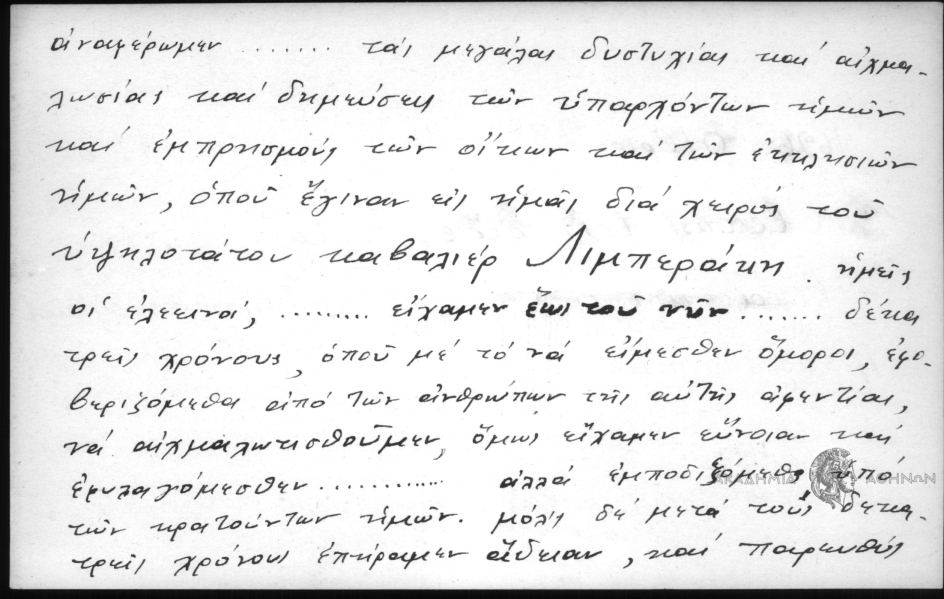 ἀναφέρωμεν ........ τάς μεγάλας δυστυχίας καί αἰχμα-
λωσίας καί δημεύσεις τῶν ὑπαρχόντων ἡμῶν
καί ἐμπρησμούς τῶν οἴκων καί τῶν ἐκκλησιῶν
ἡμῶν, ὁποῦ ἔγιναν εἰς ἡμᾶς διά χειρός τοῦ
ὑψηλοτάτου καβαλιέρ Λιμπεράκη. ἡμεῖς
οἱ ἐλεεινά, ......... εἴχαμεν ἕως τοῦ νῦν ....... δέκα
τρεῖς χρόνους, ὁποῦ μέ τό νά εἴμεσθεν ὅμοροι, ἐφο-
βεριζόμεθα ἀπό τῶν ἀνθρώπων τῆς αὐτῆς ἀφεντίας,
νά αἰχμαλωτισθοῦμεν, ὅμως εἴχαμεν εὔνοιαν καί
ἐφυλαγόμεσθεν ............ ἀλλά ἐμποδιζόμεθα ὑπό
τῶν κρατούντων ἡμῶν. μόλις δέ μετά τούς δεκα-
τρεῖς χρόνους ἐπήραμεν ἄδειαν, καί παρευθύς
ΑΚΑΔΗΜΙΑ ΑΘΗΝΩΝ